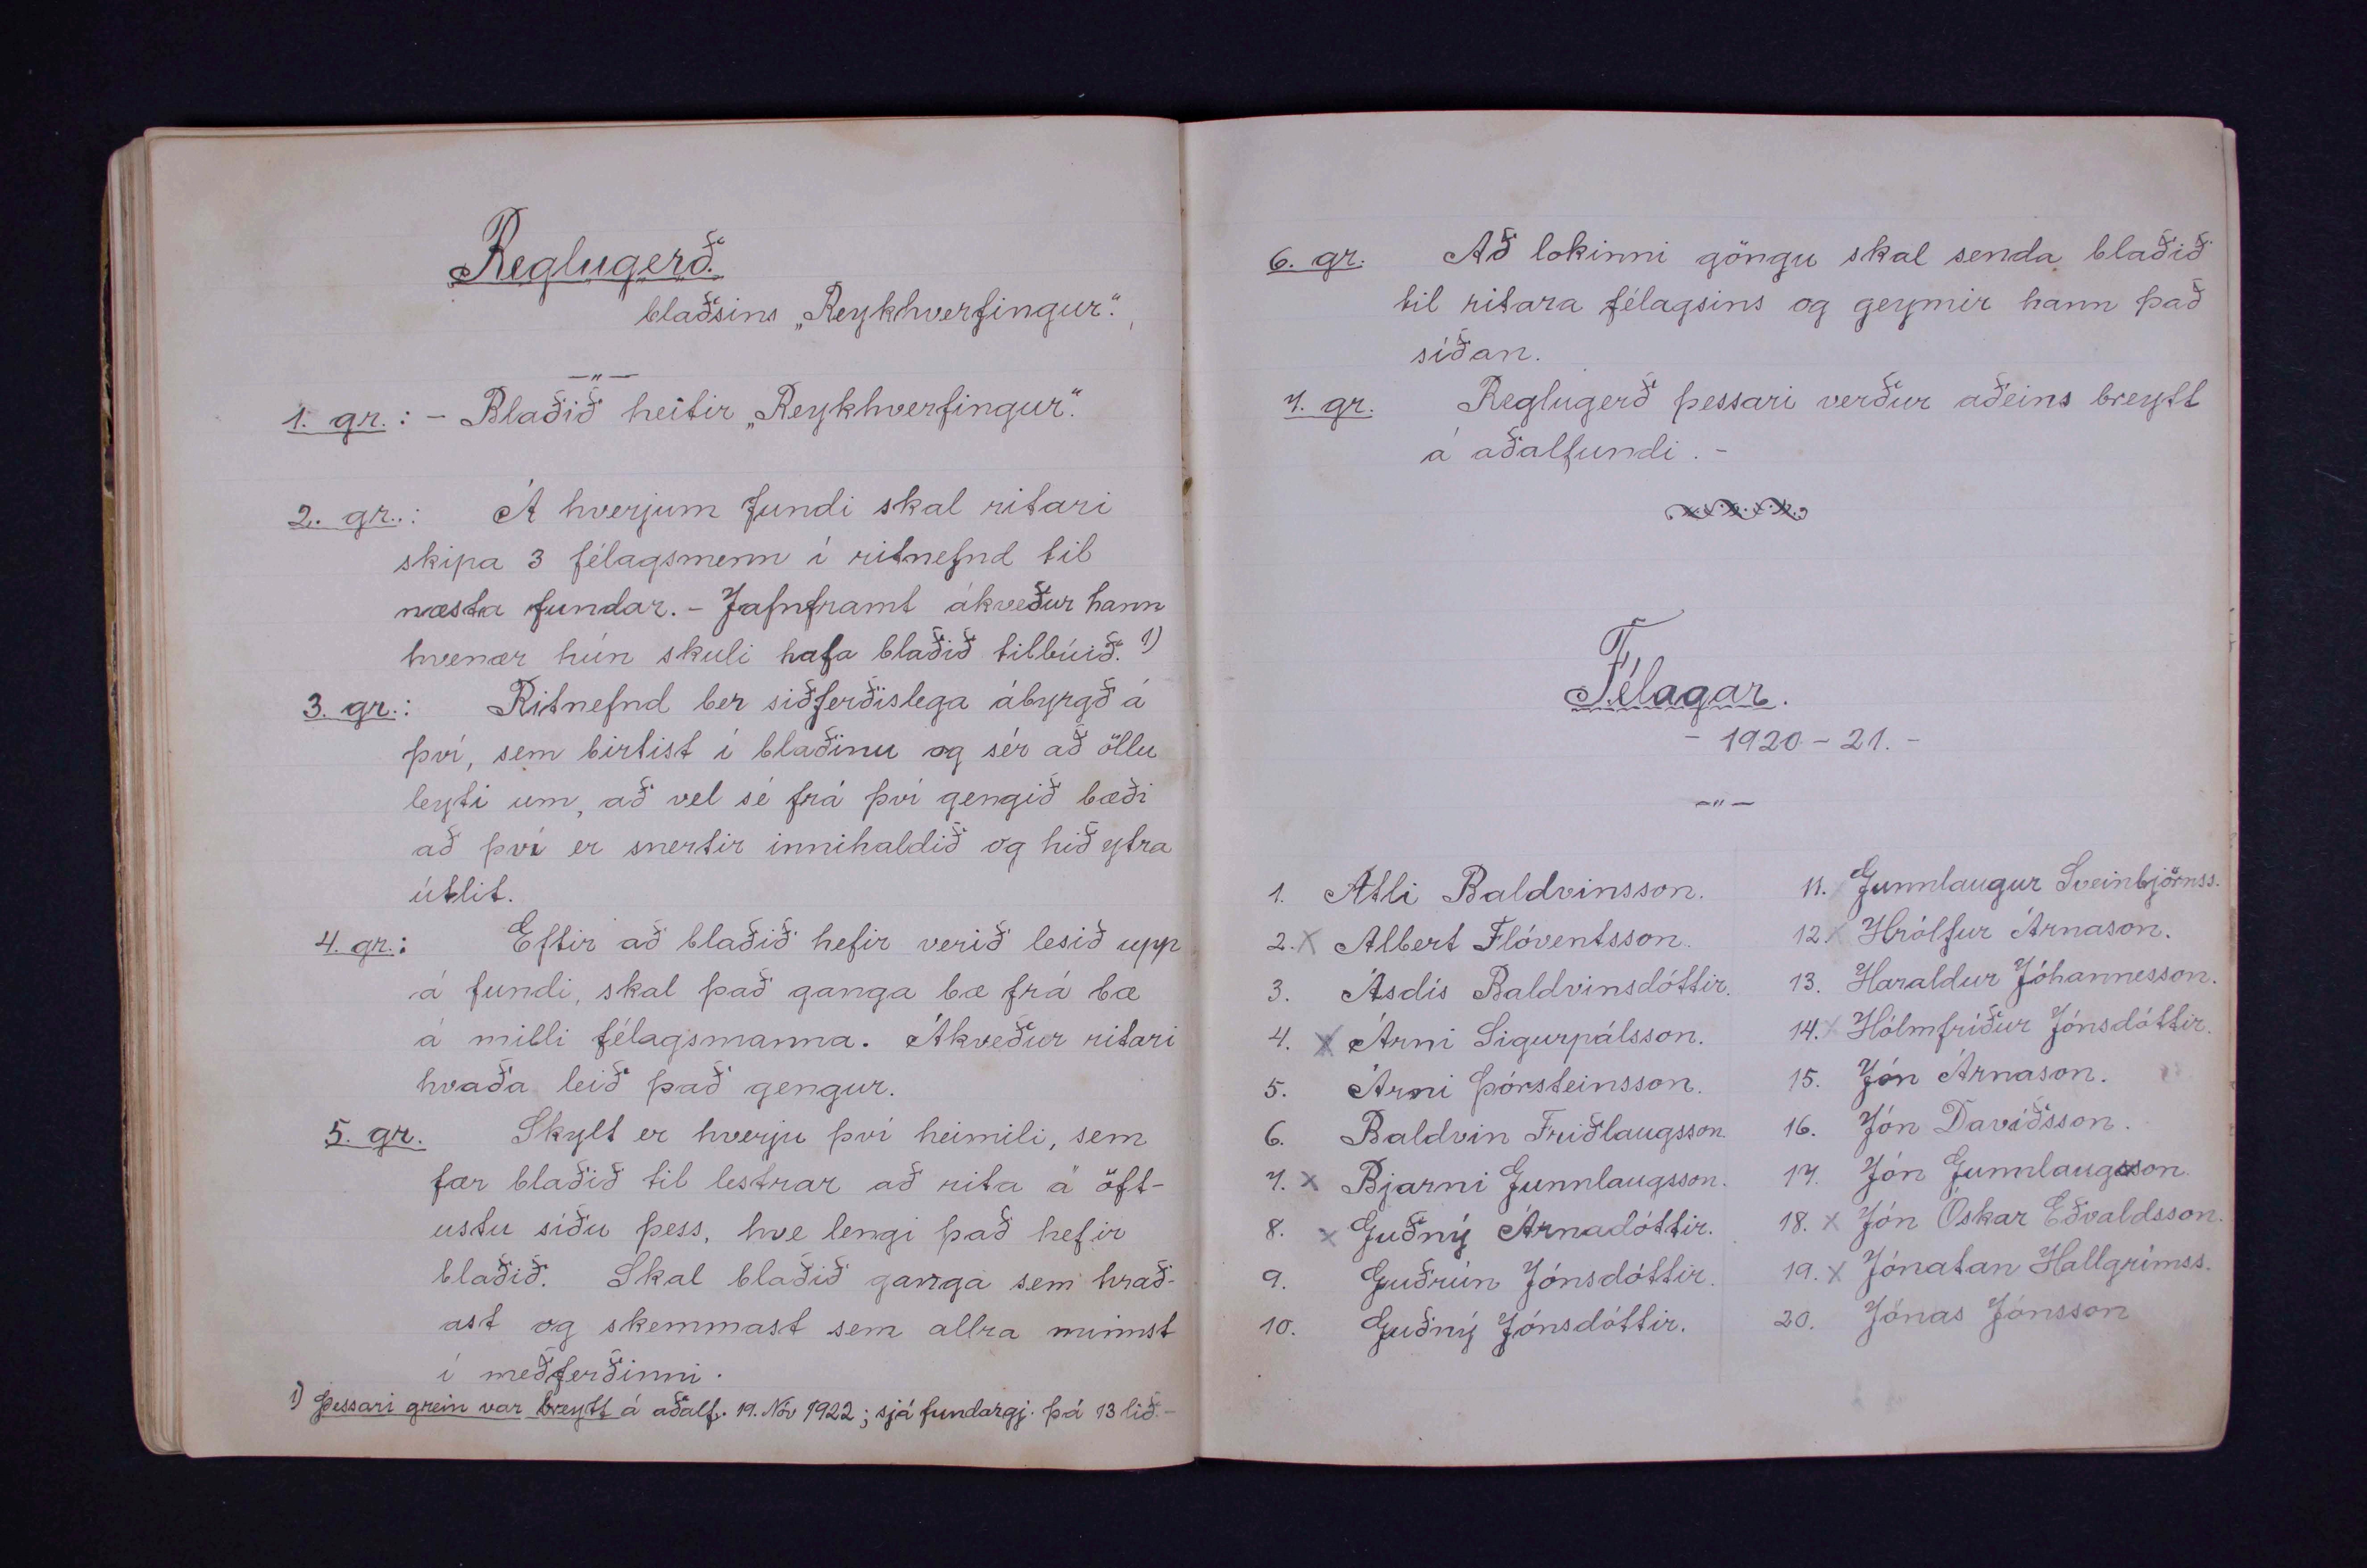 Reglugerð.
blaðsins „Reykhverfingur".
—"—
1. gr.: - Blaðið heitir „Reykhverfingur".
2. gr.: Á hverjum fundi skal ritari
skipa 3 félagsmenn í ritnefnd til
næsta fundar. - Jafnframt ákveður hann
hvenær hún skuli hafa blaðið tilbúið. 1)
3. gr.: Ritnefnd ber siðferðislega ábyrgð á
því, sem birtist í blaðinu og sér að öllu
leyti um, að vel sé frá því gengið bæði
að því er snertir innihaldið og hið ytra
útlit.
4. gr.: Eftir að blaðið hefir verið lesið upp
á fundi, skal það ganga bæ frá bæ
á milli félagsmanna. Ákveður ritari
hvaða leið það gengur.
5. gr. Skylt er hverju því heimili, sem
fær blaðið til lestrar að rita á öft-
ustu síðu þess, hve lengi það hefir
blaðið. Skal blaðið ganga sem hrað-
ast og skemmast sem allra minnst
í meðferðinni.
1) Þessari grein var breytt á aðalf. 19. Nóv 1922; sjá fundargj. þá 13 lið. -
6. gr. Að lokinni göngu skal senda blaðið
til ritara félagsins og geymir hann það
síðan.
7. gr. Reglugerð þessari verður aðeins breytt
á aðalfundi. -
Félagar.
- 1920 - 21. -
—"—
1. Atli Baldvinsson.
2. x Albert Flóventsson.
3. Ásdís Baldvinsdóttir.
4. x Árni Sigurpálsson.
5. Árni Þórsteinsson.
6. Baldvin Friðlaugsson.
7. x Bjarni Gunnlaugsson.
8. x Guðný Árnadóttir.
9. Guðrún Jónsdóttir.
10. Guðný Jónsdóttir.
11. x Gunnlaugur Sveinbjörnss.
12 x Hrólfur Árnason.
13. Haraldur Jóhannesson.
14. x Hólmfríður Jónsdóttir.
15. Jón Árnason.
16. Jón Davíðsson.
17. Jón Gunnlaugsson
18. x Jón Óskar Eðvaldsson.
19. x Jónatan Hallgrímss.
20. Jónas Jónsson